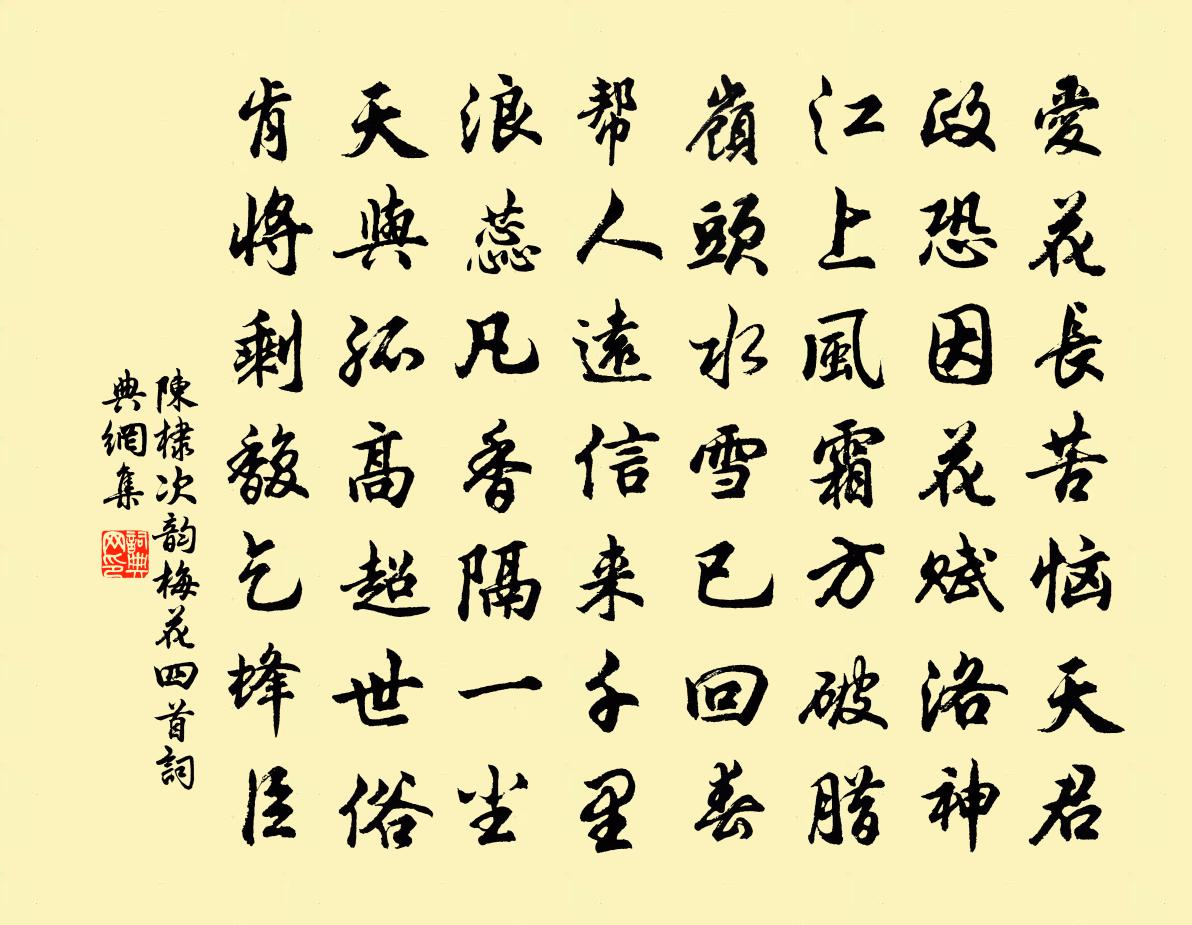 愛花長苦恼天君
政恐因花賦洛神
江上風霜方破腊
嶺頭水雪已回春
帮人遠信来千里
浪蕊凡香隔一尘
天與孤高超世俗
肯將剩馥乞蜂臣
陳棣次韵梅花四首詞
典網集
詞典
网印